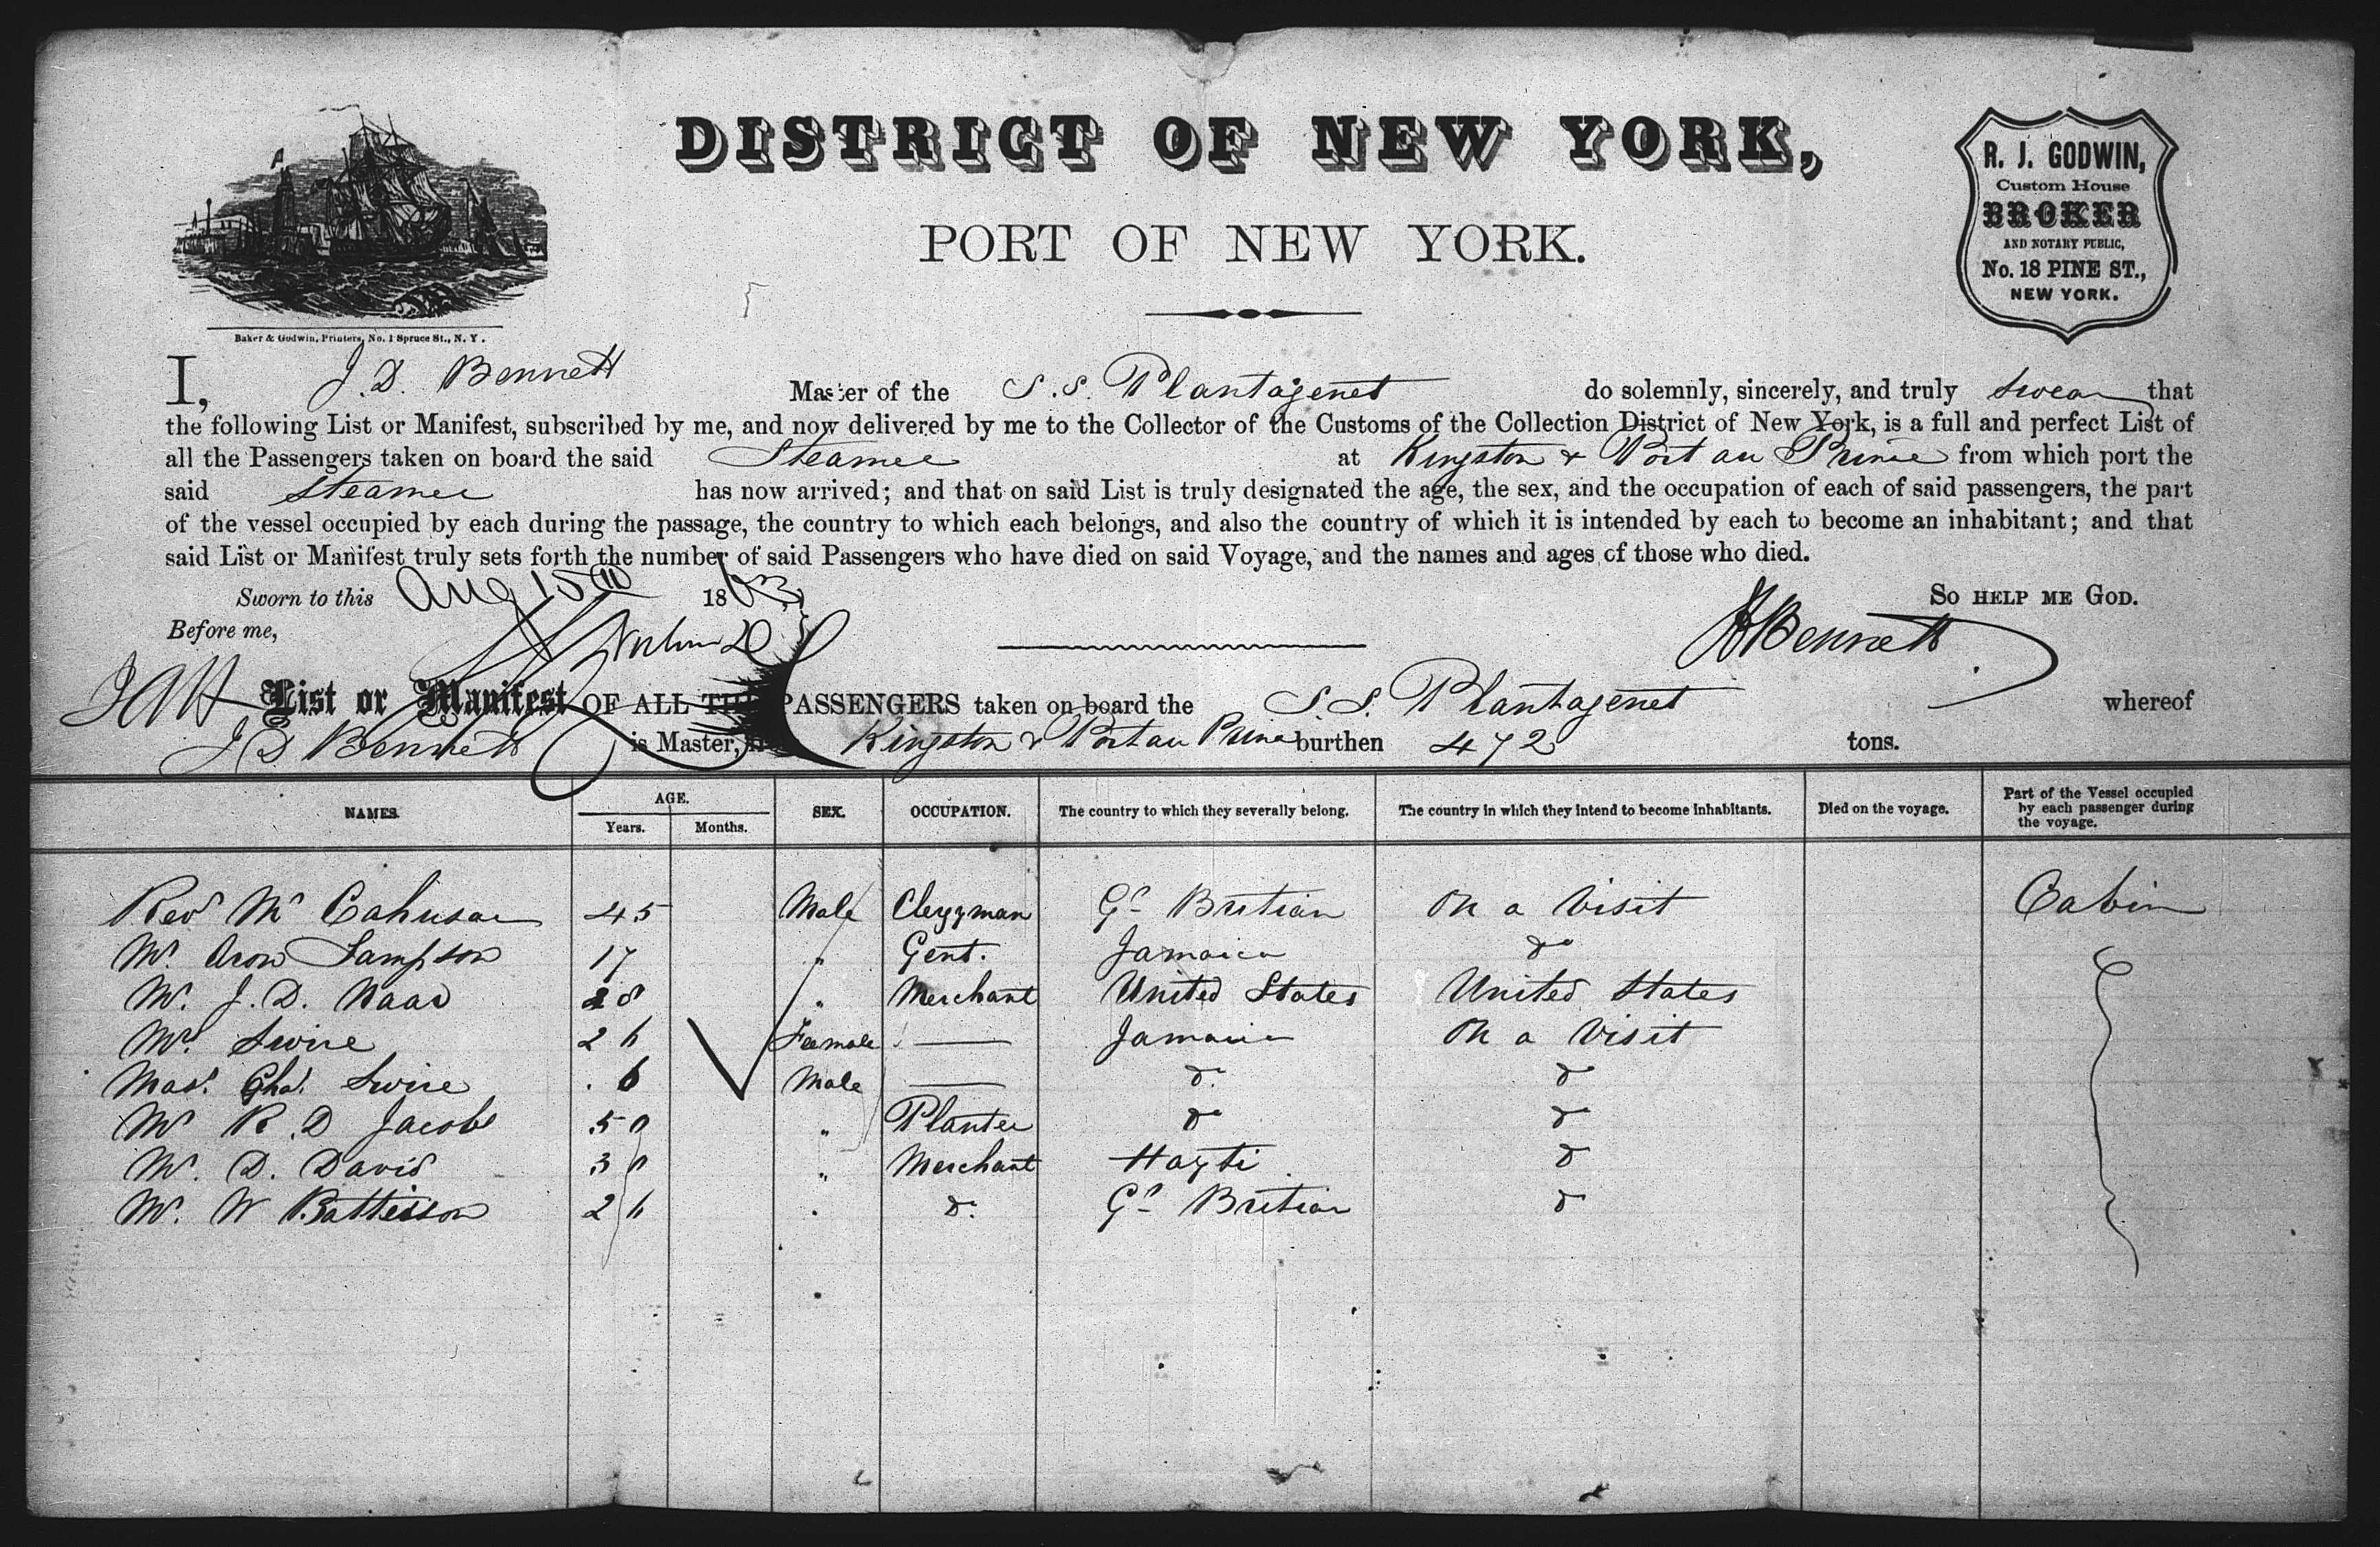 DISTRICT OF NEW YORK,
PORT OF NEW YORK.
R. J. GODWIN,
Custom House
BROKER
AND NOTARY PUBLIC,
No. 18 PINE ST.,
NEW YORK.
Baker & Godwin, Printers, No. 1 Spruce St., N. Y.
I, J. D. Bennett Master of the S. S. Plantagenet do solemnly, sincerely, and truly swear that
the following List or Manifest, subscribed by me, and now delivered by me to the Collector of the Customs of the Collection District of New York, is a full and perfect List of
all the Passengers taken on board the said Steamer at Kingston & Port au Prince from which port the
said Steamer has now arrived; and that on said List is truly designated the age, the sex, and the occupation of each of said passengers, the part
of the vessel occupied by each during the passage, the country to which each belongs, and also the country of which it is intended by each to become an inhabitant; and that
said List or Manifest truly sets forth the number of said Passengers who have died on said Voyage, and the names and ages of those who died.
Sworn to this Aug 15th 1863 So help me God.
Before me, Bennett
List or Manifest OF ALL THE PASSENGERS taken on board the S. S. Plantagenet whereof
J D Bennett is Master, Kingston & Port au Prince burthen 472 tons.
NAMES. AGE. Years. Months. SEX. OCCUPATION. The country to which they severally belong. The country in which they intend to become inhabitants. Died on the voyage. Part of the Vessel occupied by each passenger during the voyage.
Revd Mr Cahusac 45 Male Clergyman Gt Britian On a Visit Cabin
Mr. Aron Sampson 17 " Gent. Jamaica do
Mr. J. D. Naar 28 " Merchant United States United States
Mrs. Swire 26 Feemale — Jamaica On a Visit
Mast. Chas. Swire 6 Male — do do
Mr R. D Jacobs 50 " Planter do do
Mr. D. Davis 30 " Merchant Hayti do
Mr. W Battisson 26 " do Gt Britian do